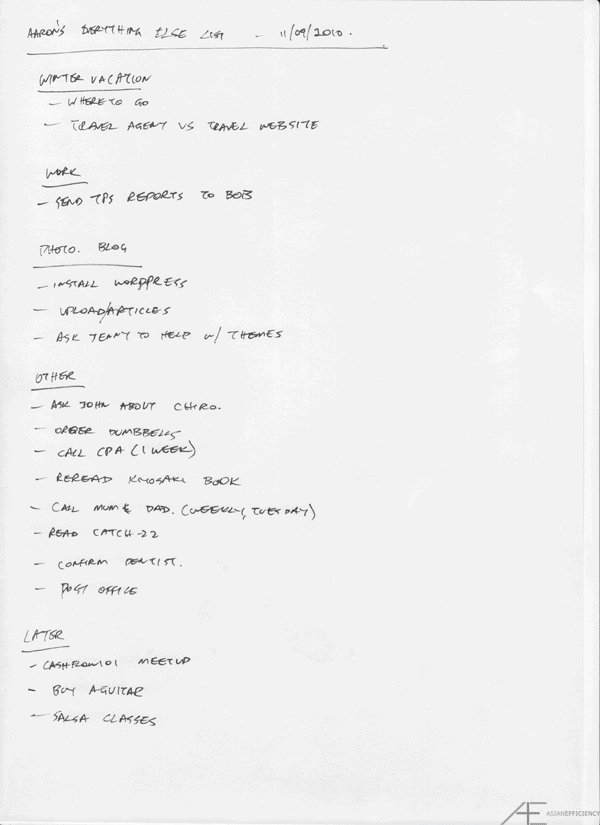 AARON'S EVERYTHING ELSE LIST - 11/09/2010.
WINTER VACATION
- WHERE TO GO
- TRAVEL AGENT VS TRAVEL WEBSITE
WORK
- SEND TPS REPORTS TO BOB
PHOTO. BLOG
- INSTALL WORDPRESS
- UPLOAD/ARTICLES
- ASK JENNY TO HELP W/ THEMES
OTHER
- ASK JOHN ABOUT CHIRO.
- ORDER DUMBBELLS
- CALL CPA (1 WEEK)
- REREAD KIYOSAKI BOOK
- CALL MUM & DAD. (WEEKLY, TUESDAY)
- READ CATCH-22
- CONFIRM DENTIST.
- POST OFFICE
LATER
- CASHFLOW101 MEETUP
- BUY A GUITAR
- SALSA CLASSES
AE ASIANEFFICIENCY